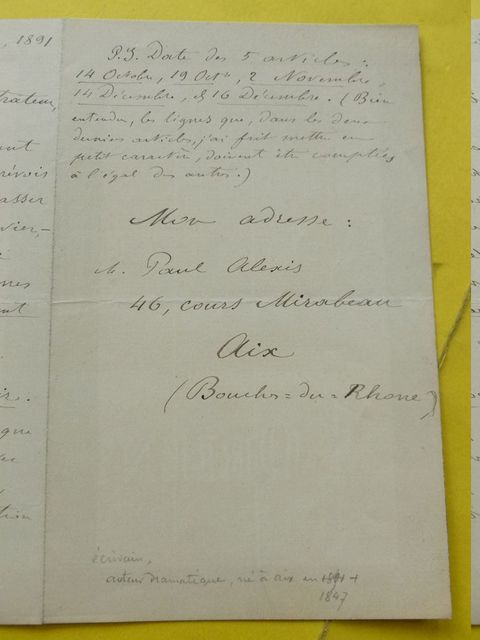 , 1891
P.S. Date des 5 articles :
14 Octobre, 19 Oct^bre, 2 Novembre,
14 Décembre, & 16 Décembre. (Bien
entendu, les lignes que, dans les deux
derniers articles, j'ai fait mettre en
petit caractère, doivent être comptées
à l'égal des autres.)
Mon adresse :
M. Paul Alexis
46, cours Mirabeau
Aix
(Bouches=du=Rhone)
écrivain,
auteur dramatique, né à aix en
1847